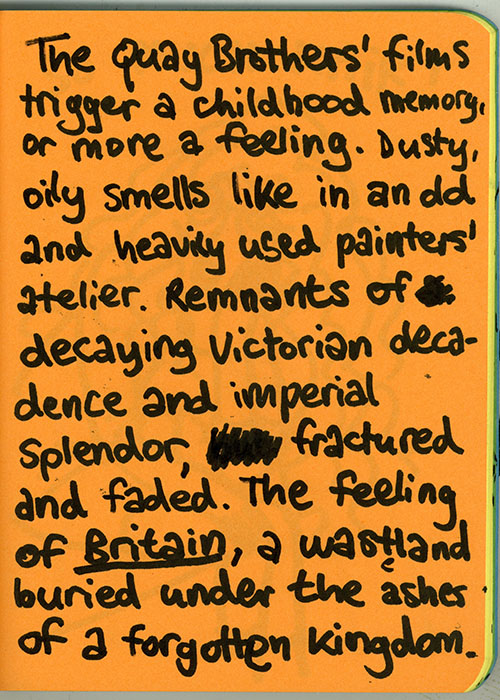 The Quay Brothers' films
trigger a childhood memory,
or more a feeling. Dusty,
oily smells like in an old
and heavily used painters'
atelier. Remnants of
decaying Victorian deca-
dence and imperial
splendor, fractured
and faded. The feeling
of Britain, a wasteland
buried under the ashes
of a forgotten kingdom.